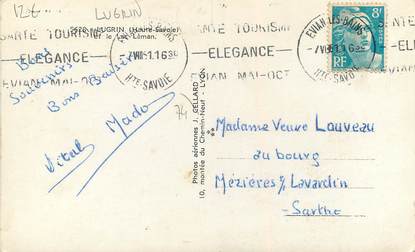 12€ LUGRIN
SANTE TOURISME
ELEGANCE
EVIAN MAI-OCT
EVIAN-LES-BAINS
HTE-SAVOIE
SANTE TOURISME
- ELEGANCE -
EVIAN MAI-OCT
EVIAN-LES-BAINS
HTE-SAVOIE
8F
RF
LUGRIN (Haute-Savoie)
et le Lac Léman.
Souvenirs
Bons Baisers
Vital Mado
74
Photos aériennes J. GELLARD
10, montée du Chemin-Neuf - LYON.
Madame Veuve Louveau
au bourg
Mézières s/ Lavardin
Sarthe